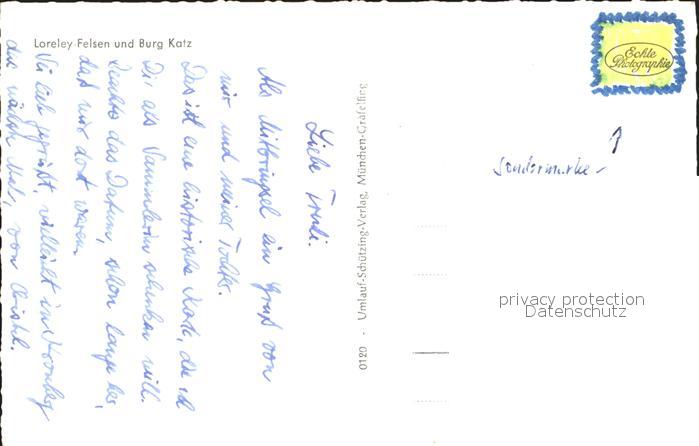 Loreley-Felsen und Burg Katz
Echte
Photographie
Sondermarke
Liebe Trudi.
Als Mitbringsel ein Gruß von
mir und meiner Tochter.
Das ist eine historische Karte, die ich
Dir als Sammlerin schenken will.
das Datum, schon lange her,
daß wir dort waren.
Sei lieb gegrüßt, vielleicht in Kronberg
das nächste Mal, von Christel.
0120 - Umlauf-Schützing-Verlag, München-Gräfelfing
privacy protection
Datenschutz